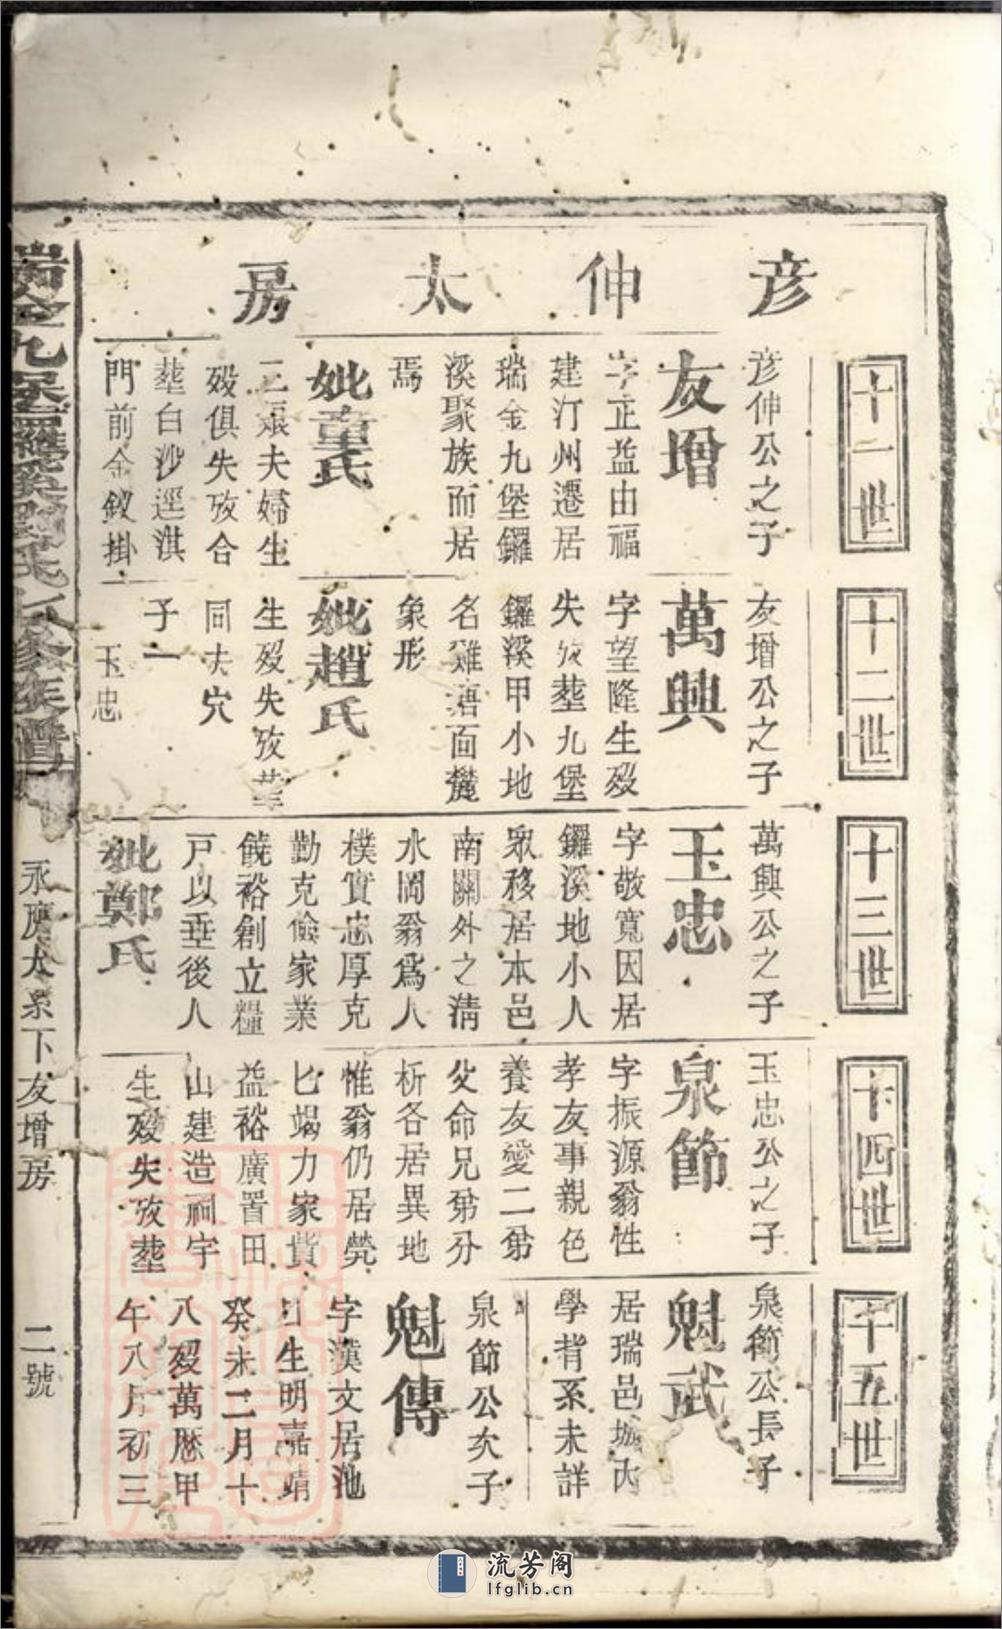 彦伸太房
十一世
彦伸公之子
友增
字正益由福
建汀州遷居
瑞金九堡鑼
溪聚族而居
焉
妣童氏
二孺夫婦生
歿俱失攷合
塟白沙逕淇
門前金釵掛
十二世
友增公之子
萬興
字望隆生歿
失攷塟九堡
鑼溪甲小地
名雞 面
象形
妣趙氏
生歿失攷塟
同夫穴
子一
玉忠
十三世
萬興公之子
玉忠
字敬寬因居
鑼溪地小人
眾移居本邑
南關外之清
水岡翁爲人
樸實忠厚克
勤克儉家業
饒裕創立糧
戸以垂後人
妣鄭氏
十四世
玉忠公之子
泉節
字振源翁性
孝友事親色
養友愛二弟
父命兄弟分
析各居異地
惟翁仍居㷀
匕竭力家貲
益裕廣置田
山建造祠宇
生歿失攷塟
十五世
泉節公長子
魁武
居瑞邑城内
學背系未詳
泉節公次子
魁傳
字漢文居池
口生明嘉靖
癸未二月十
八歿萬厯甲
午八月初三
瑞金九堡羅溪劉氏 修族譜
永廣太系下友增房
二號
流芳阁
lfglib.cn